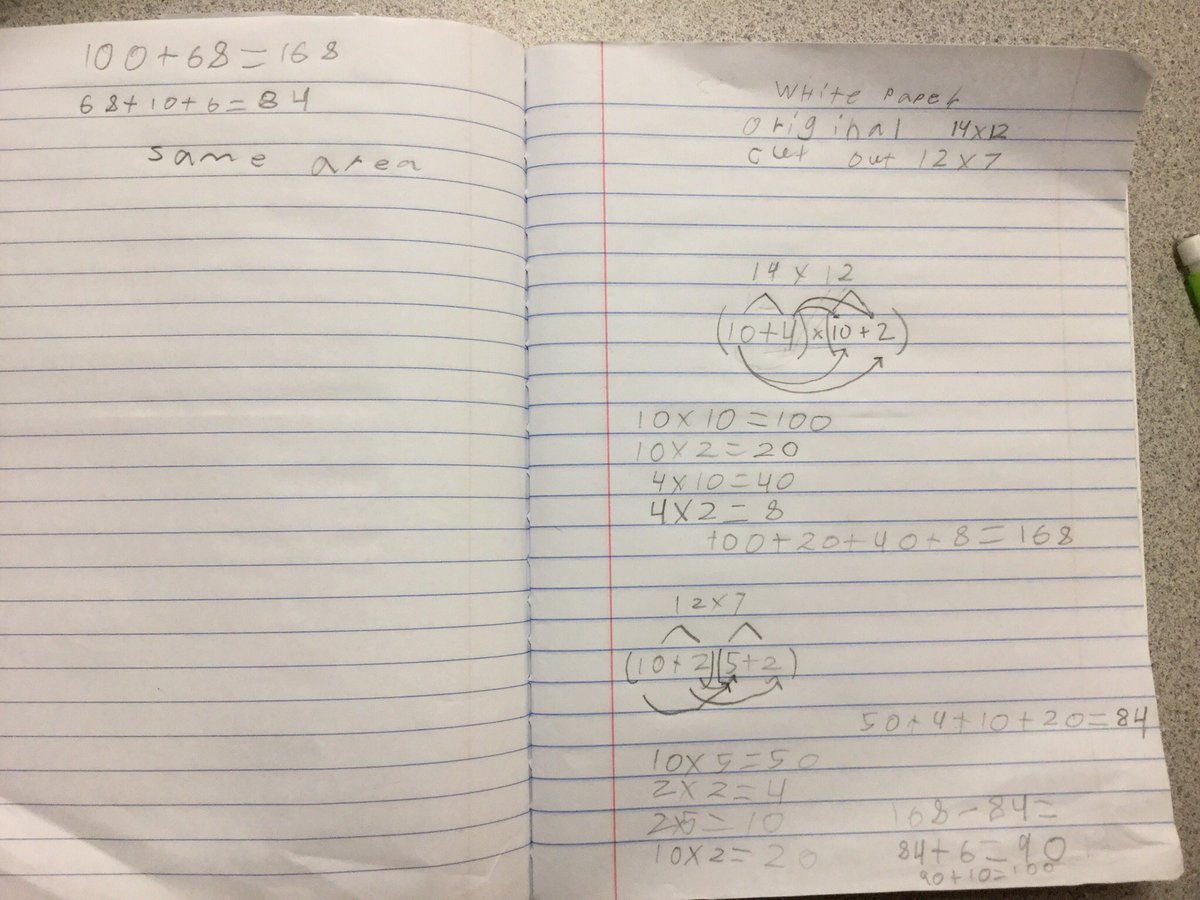 100+68=168
68+10+6=84
same area
White Paper
original 14x12
cut out 12x7
14 x 12
(10+4)x(10+2)
10x10=100
10x2=20
4x10=40
4x2=8
100+20+40+8=168
12x7
(10+2)(5+2)
50+4+10+20=84
10x5=50
2x2=4
2x5=10
10x2=20
168-84=
84+6=90
90+10=100